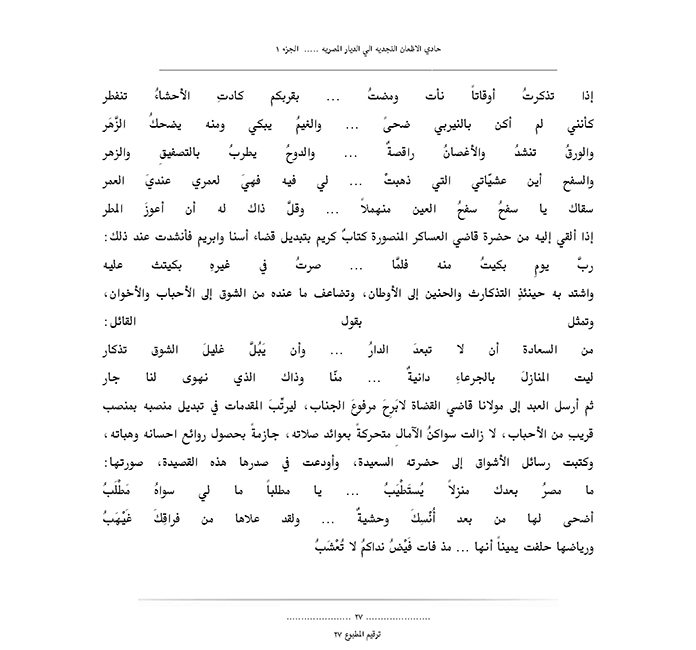 حادي الاظعان النجديه الي الديار المصريه ..... الجزء ١
إذا تذكرتُ أوقاتاً نأت ومضتُ ... بقربكم كادتِ الأحشاءُ تنفطر
كأنني لم أكن بالنيربي ضحىً ... والغيمُ يبكي ومنه يضحكُ الزَّهَر
والورقُ تنشدُ والأغصانُ راقصةٌ ... والدوحُ يطربُ بالتصفيقِ والزهر
والسفح أين عشيّاتي التي ذهبتْ ... لي فيه فهيَ لعمري عنديَ العمر
سقاك يا سفحُ سفحُ العين منهملاً ... وقلَّ ذاك له أن أعوزَ المطر
إذا ألقي إليه من حضرة قاضي العساكر المنصورة كتابٌ كريم بتبديل قضاء أسنا وابريم فأنشدت عند ذلك:
ربَّ يومٍ بكيتُ منه فلمَّا ... صرتُ في غيرهِ بكيتث عليه
واشتد به حينئذِ التذكارث والحنين إلى الأوطان، وتضاعف ما عنده من الشوق إلى الأحباب والأخوان،
وتمثل بقول القائل:
من السعادة أن لا تبعدَ الدارُ ... وأن يَبُلَّ غليلَ الشوق تذكار
ليت المنازلَ بالجرعاءِ دانيةٌ ... منّا وذاك الذي نهوى لنا جار
ثم أرسل العبد إلى مولانا قاضي القضاة لابَرِحَ مرفوعَ الجناب، ليرتِّبَ المقدمات في تبديل منصبه بمنصب
قريبٍ من الأحباب، لا زالت سواكنُ الآمالِ متحركةً بعوائد صلاته، جازمةً بحصول روائع احسانه وهباته،
وكتبت رسائل الأشواق إلى حضرته السعيدة، وأودعت في صدرها هذه القصيدة، صورتها:
ما مصرُ بعدك منزلاً يُستَطْيَبُ ... يا مطلباً ما لي سواهُ مَطْلَبُ
أضحى لها من بعد أُنْسِكَ وحشيةٌ ... ولقد علاها من فراقِكَ غَيْهَبُ
ورياضها حلفت يميناً أنها ... مذ فات فَيْضُ نداكمُ لا تُعْشَبُ
...................... ٢٧ ......................
ترقيم المطبوع ٢٧